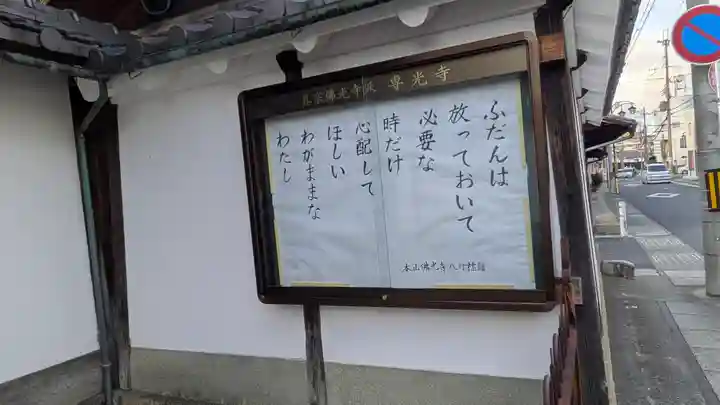 真宗佛光寺派 専光寺
ふだんは
放っておいて
必要な
時だけ
心配して
ほしい
わがままな
わたし
本山佛光寺 八行標語